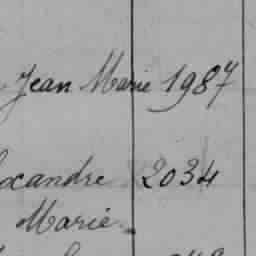 Jean Marie 1987
xandre 2034
Marie